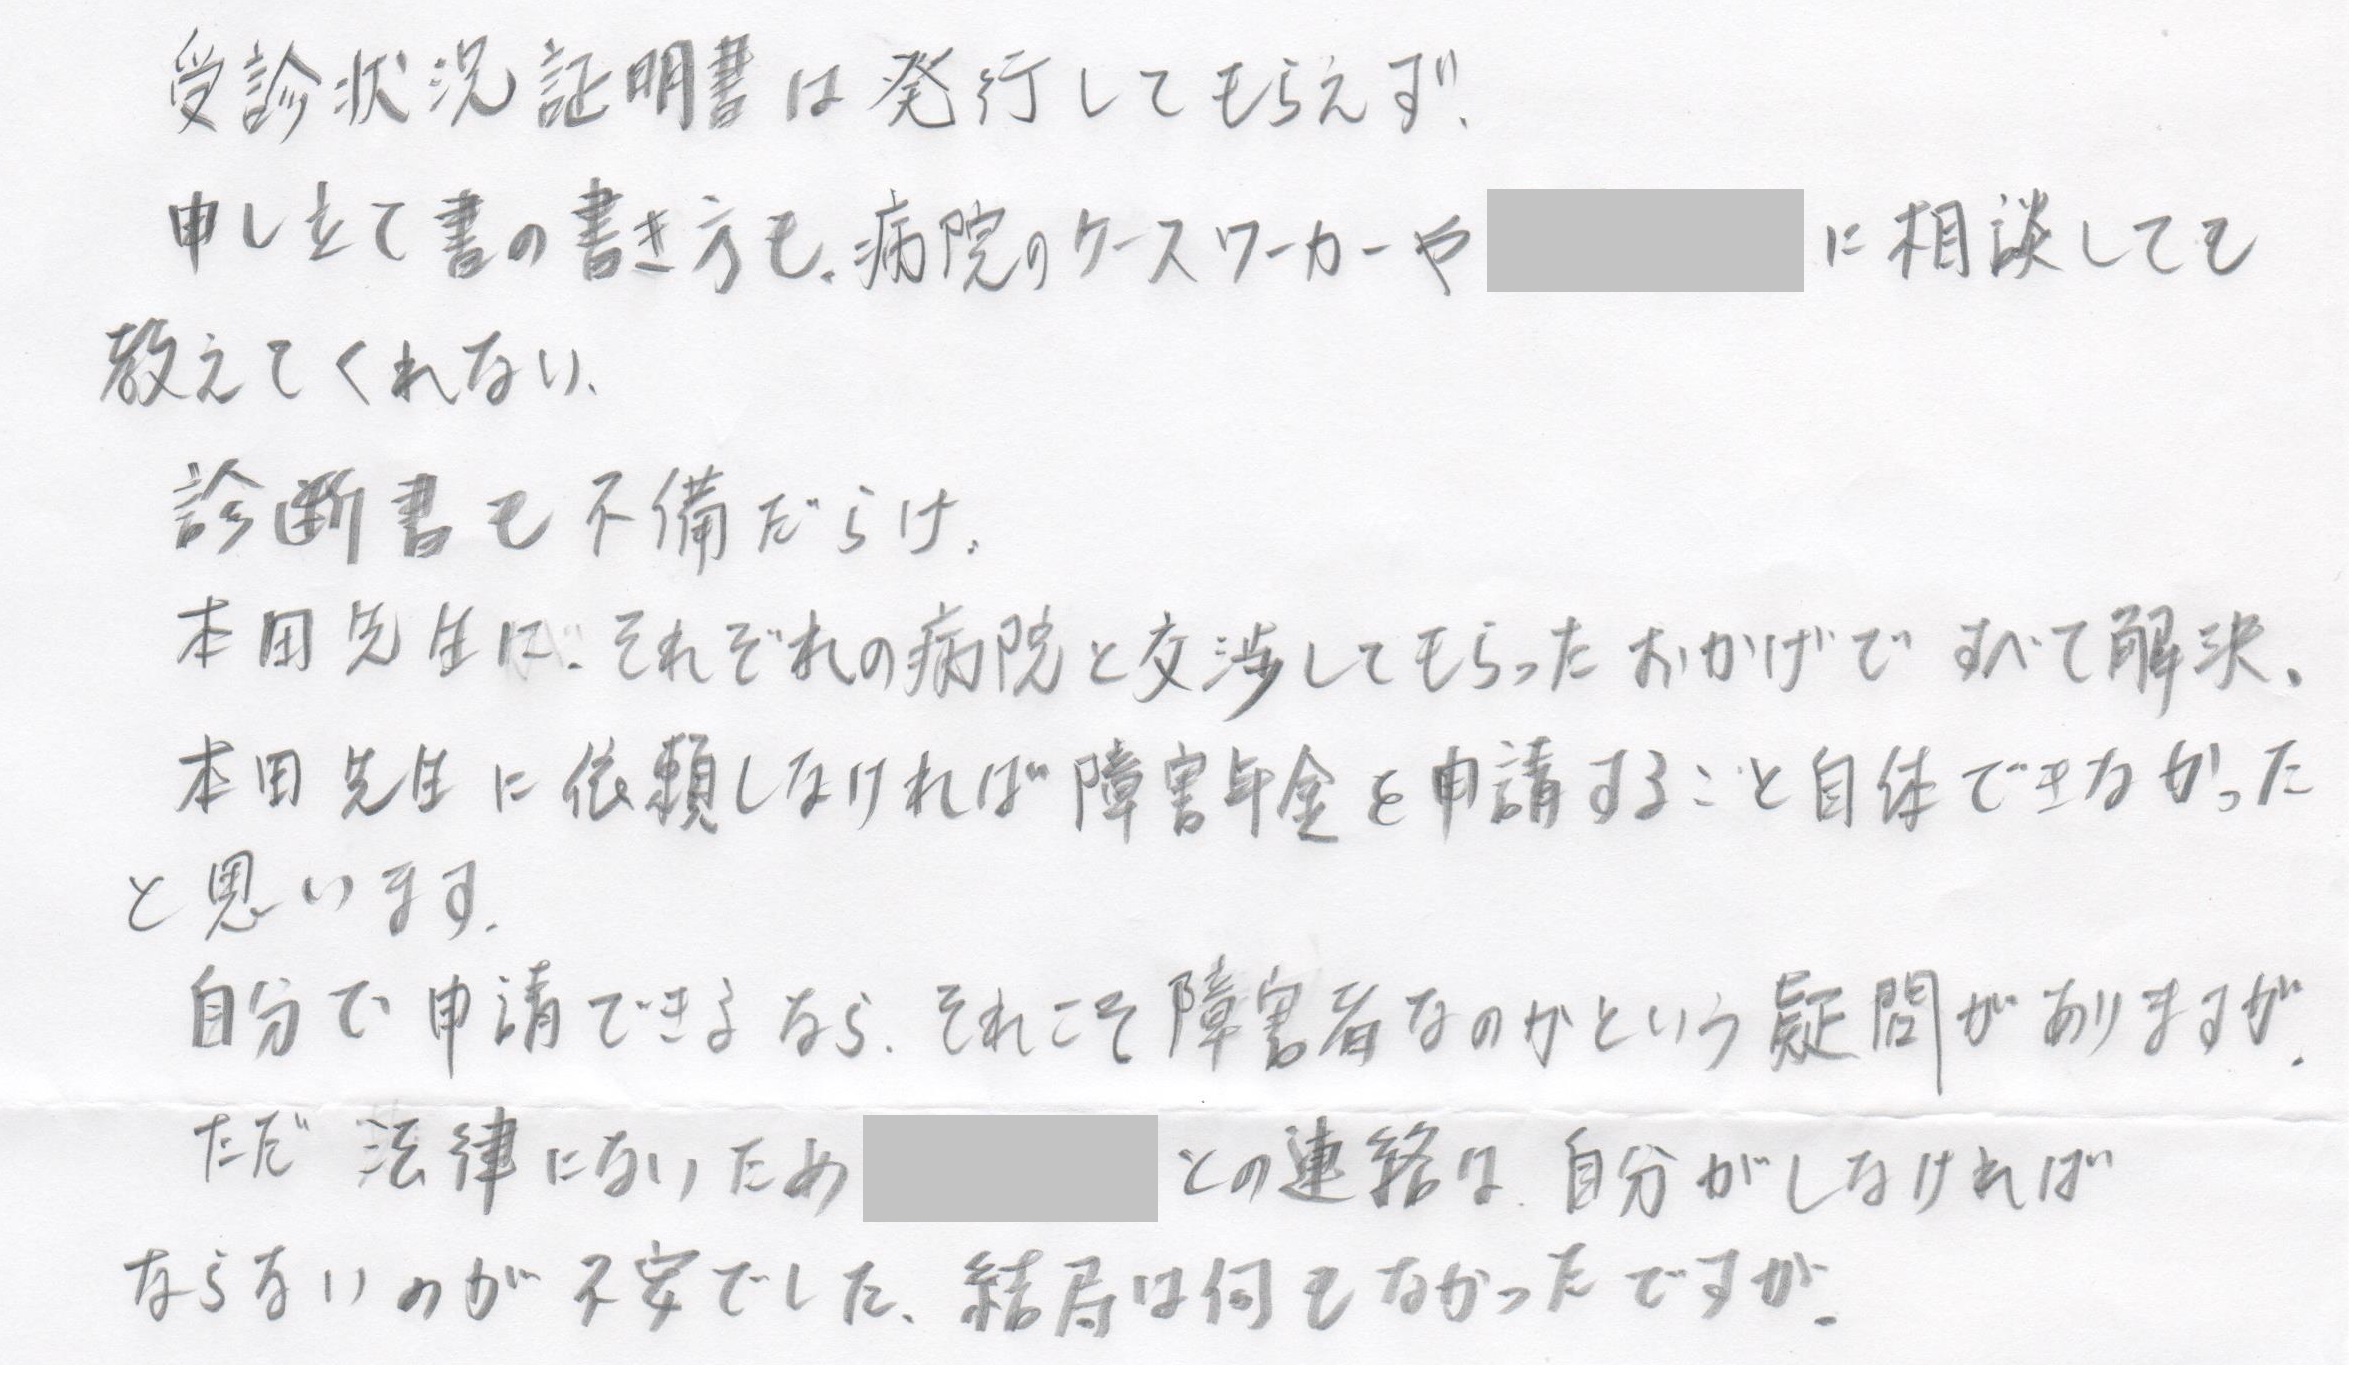 受診状況証明書は発行してもらえず、
申し立て書の書き方も、病院のケースワーカーや に相談しても
教えてくれない、
診断書も不備だらけ、
本田先生に、それぞれの病院と交渉してもらったおかげですべて解決、
本田先生に依頼しなければ障害年金を申請すること自体できなかった
と思います。
自分で申請できるなら、それこそ障害者なのかという疑問がありますが、
ただ法律にないため との連絡は、自分がしなければ
ならないのが不安でした、結局は何もなかったですが。